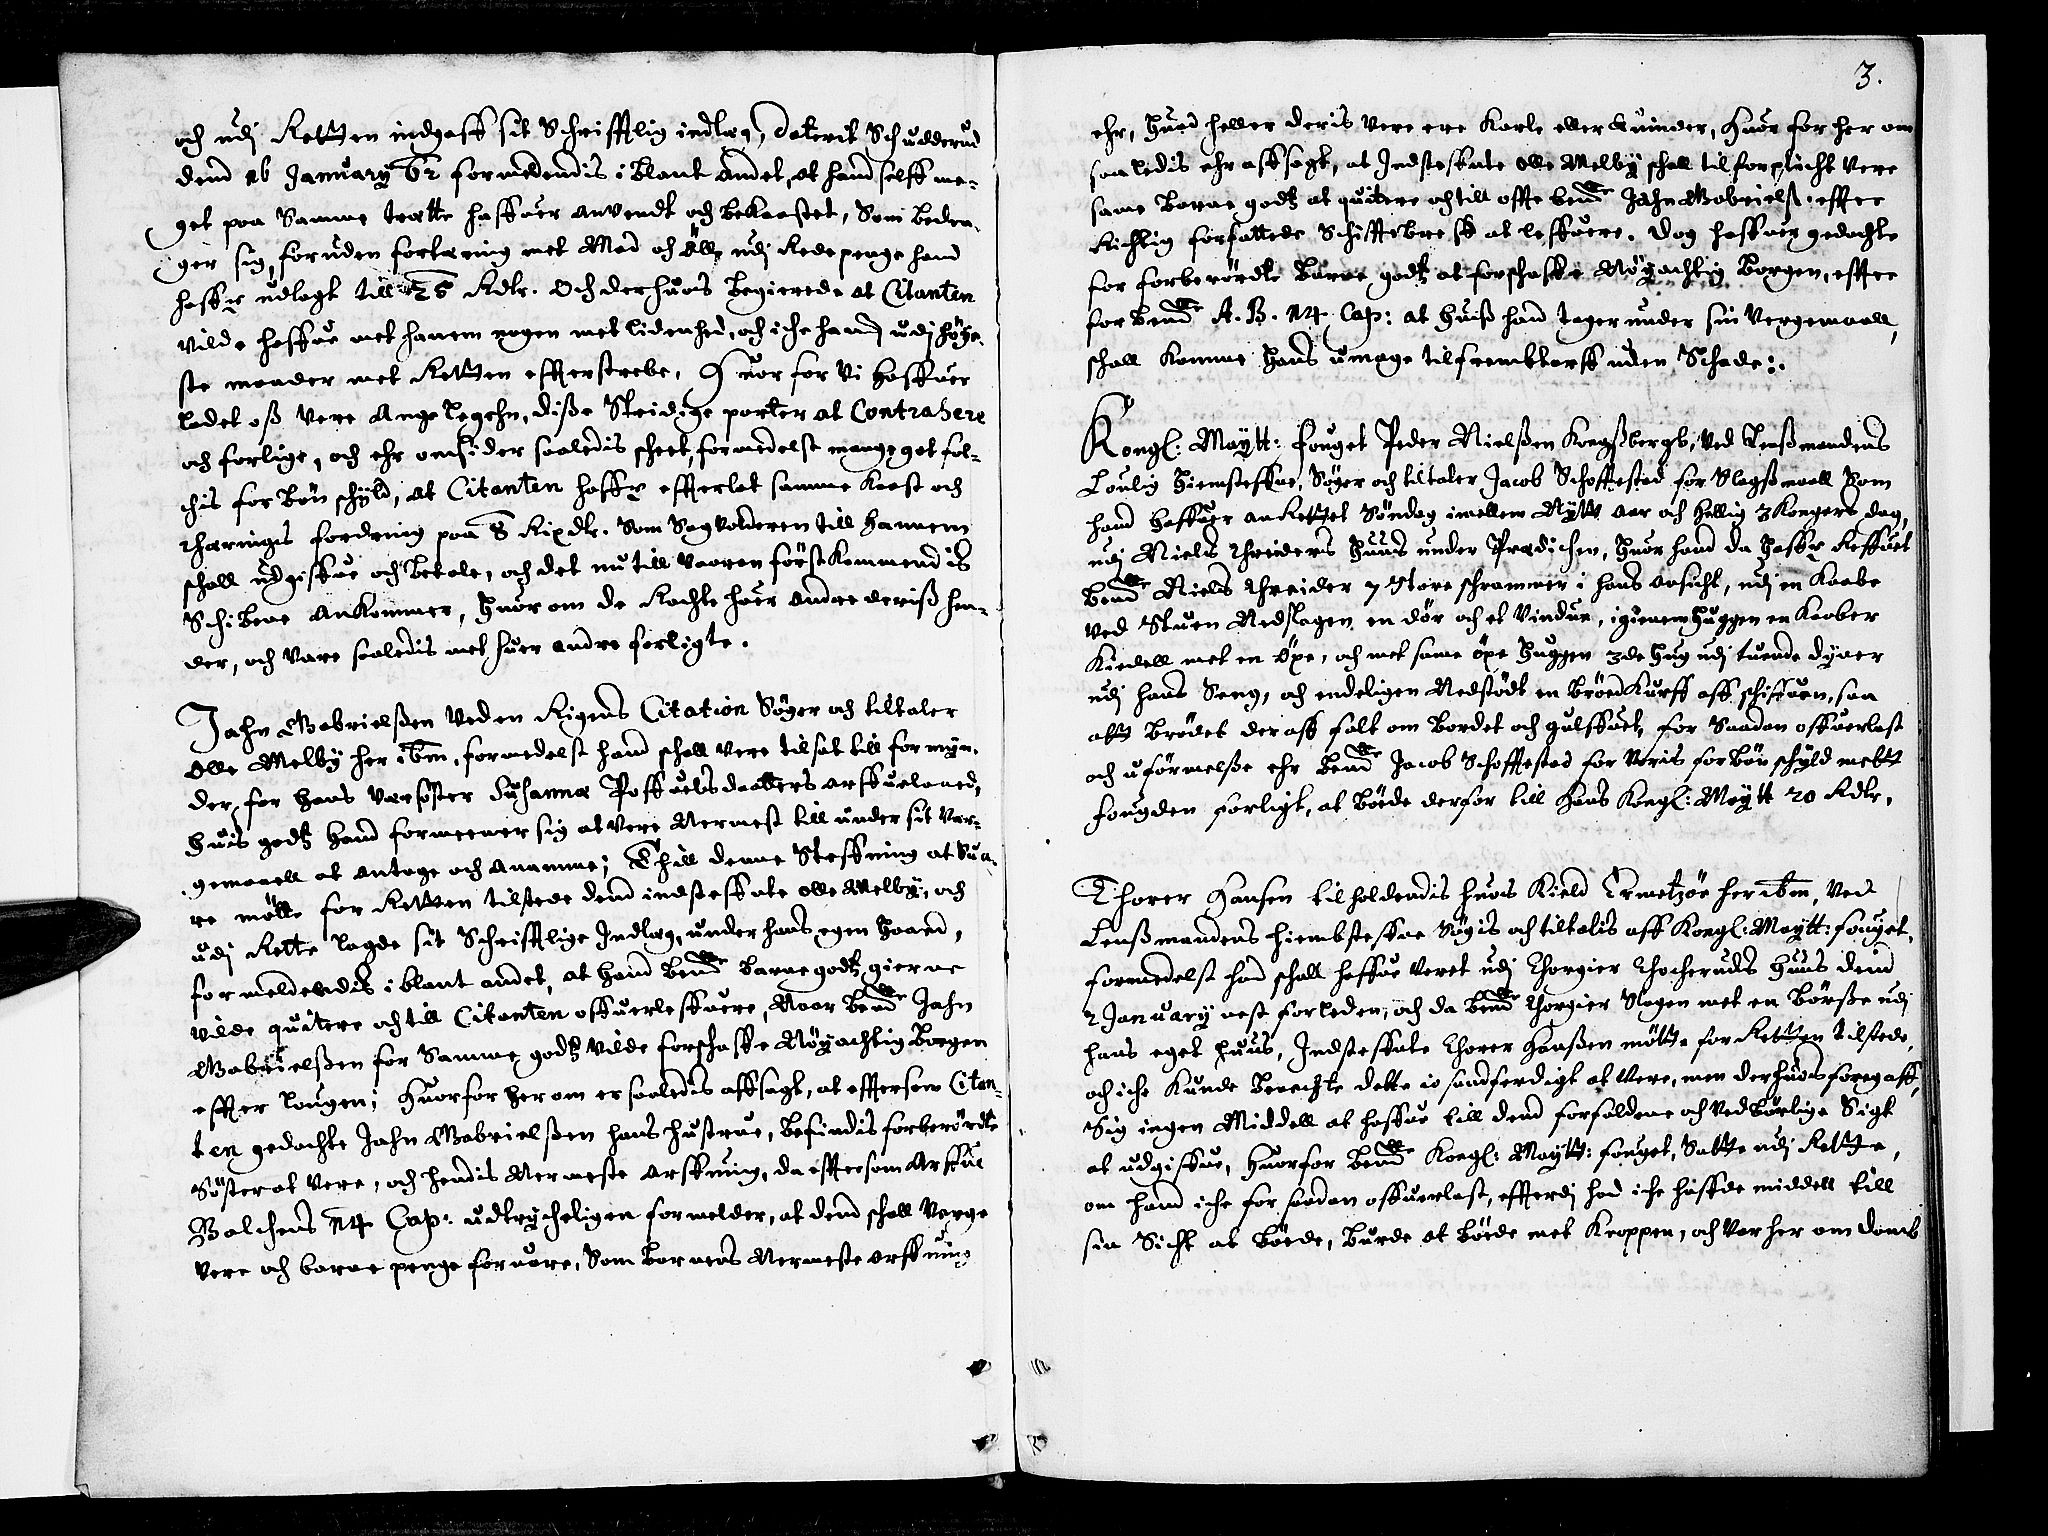 och udj Retten indgaff sit Schrifftlig indlæg, daterit Schudderud
dend 26 January 62 formeldendis iblant andet, at hand selff me-
get paa Samme trætte haffuer anvendt och bekaastet, Som bedra-
ger sig, foruden forteering met Mad och Öll, udj Rede penge hand
haffr udlagt till 25 Rdlr. Och derhuois begierede at Citanten
vilde haffue met hanem nogen met lidenhed, och iche hand udj höye-
ste maader met Retten effterstrebe, Huorfor Vi haffuer
ladet oß vere angelegehn, diße Streidige parter at Contrahere
och forlige, och ehr omsider saaledis scheet, formedelst mange got fol-
chis forbön schyld, at Citanten haffr effterlat samme Kaast och
thæringis fordring paa 8 Rixdlr. Som Sagvolderen till hannem
schall udgiffue och betale, och det nu till Vaaren förstkommendis
Schibene ankommer, huorom de Rachte huer andre deriß hen-
der, och vare saaledis met huer andre forligte.
Jahn Gabrielßen Ved en Rigens Citation Söger och tiltaler
Olle Melby her ibm, formedelst hand schall vere tilsat till formyn-
der for hans Varsöster Susanna Poffuelsdaatters arffuelaaed,
huis godtz hand formeener sig at vere Nermest till under sit Ver-
gemaall at antage och anamme; Thill denne Steffning at Sua-
re mötte for Retten tilstede dend indsteffnte Olle Melby, och
udj Rette lagde sit Schrifftlige Indlæg, under hans egen Haand,
formeldendis iblant andet, at hand bemelte barnegodtz gierne
vilde quitere och till Citanten offuerleffuere, Naar bemelte Jahn
Gabrielßen for Samme godtz vilde forschaffe Nöyachtig Borgen
effter lougen; Huorfor herom er saaledis affsagt, at efftersom Citan-
ten gedachte Jahn Gabrielßen hans hustrue, befindis forberördte
Söster at vere, och hendis Nermeste arffuing, da efftersom Arffue
Balchens 14 Cap: udtrycheligen formelder, at dend schall Verge
vere och barne penge foruare, Som barnens Nermeste arffuing
3.
ehr, huad heller deris vere ere Karle eller Quinder, Huorfor herom
saaledis ehr affsagt, at Indsteffnte Olle Melby schall tilforplicht vere
same barne godtz at quitere och till offte bemelte Jahn Gabrielß: effter
Richtig forfattede Schifftebreff at leffuere. Dog haffuer gedachte
for forberördte barne godtz at forschaffe Nöyachtig Borgen, effter
forbemelte A. B. 14 Cap: at huiß hand tager under sin Vergemaall,
schall komme hans umage til frembtarff uden Schade:.
Kongl: Maytt: fouget Peder Nielßen Kongßbergh, Ved Lenßmandens
Loulig hiemsteffne, Söger och tiltaler Jacob Schoffsted for Slagßmaall som
hand haffuer anrettet Söndag imellem Nytt Aar och hellig 3 Kongers dag,
udj Niels Schreiders huus under Predichen, huor hand da haffr Reffuet
bemelte Niels Schreider 7 Store schrammer i hans ansicht, udj en Kaabe
ved Stuen Nedslagen en dör och et Vindue, igienemhuggen en Kaaber
Kiedell met en öxe, och met same öxe huggen 3de hug udj tuende dyner
udj hans Seng, och endeligen Nedstödt en brödkurff aff schiffuen, saa
att brödet deraff falt om bordet och gulffuet, for saadan offuerlast
och uförmelße ehr bemelte Jacob Schoffsted for Voris forbön schyld mett
fougden forligt, at böede derfor till hans Kongl: Maytt 20 Rdlr.
Thorer Hansen tilholdendis huois Kield Ermetzöe her ibm, Ved
Lenßmandens hiembsteffne Sögis och tiltalis aff Kongl: Maytt: fouget,
formedelst hand schall haffue Veret udj Thorgier Thocheruds huus dend
2 January nest forleden, och da bemelte Thorgier Slagen met en börße udj
hans eget huus, Indsteffnte Thorer Hanßen mötte for Retten tilstede,
och iche kunde benechte dette io sandferdigt at vere, men derhuois foregaff,
Sig ingen Middell at haffue till dend forfaldene och Vedbörlige Sigt
at udgiffue, huorfor bemelte Kongl: Maytt: fouget, Satte udj Rette,
om hand iche for saadan offuerlast, efftterdj hand iche haffde middell till
sin Sicht at böede, burde at böede met Kroppen, och var herom doms